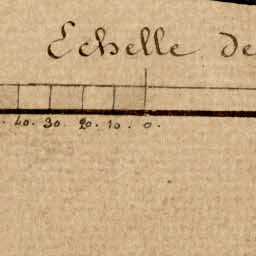 Echelle de
. 40. 30. 20. 10. 0.